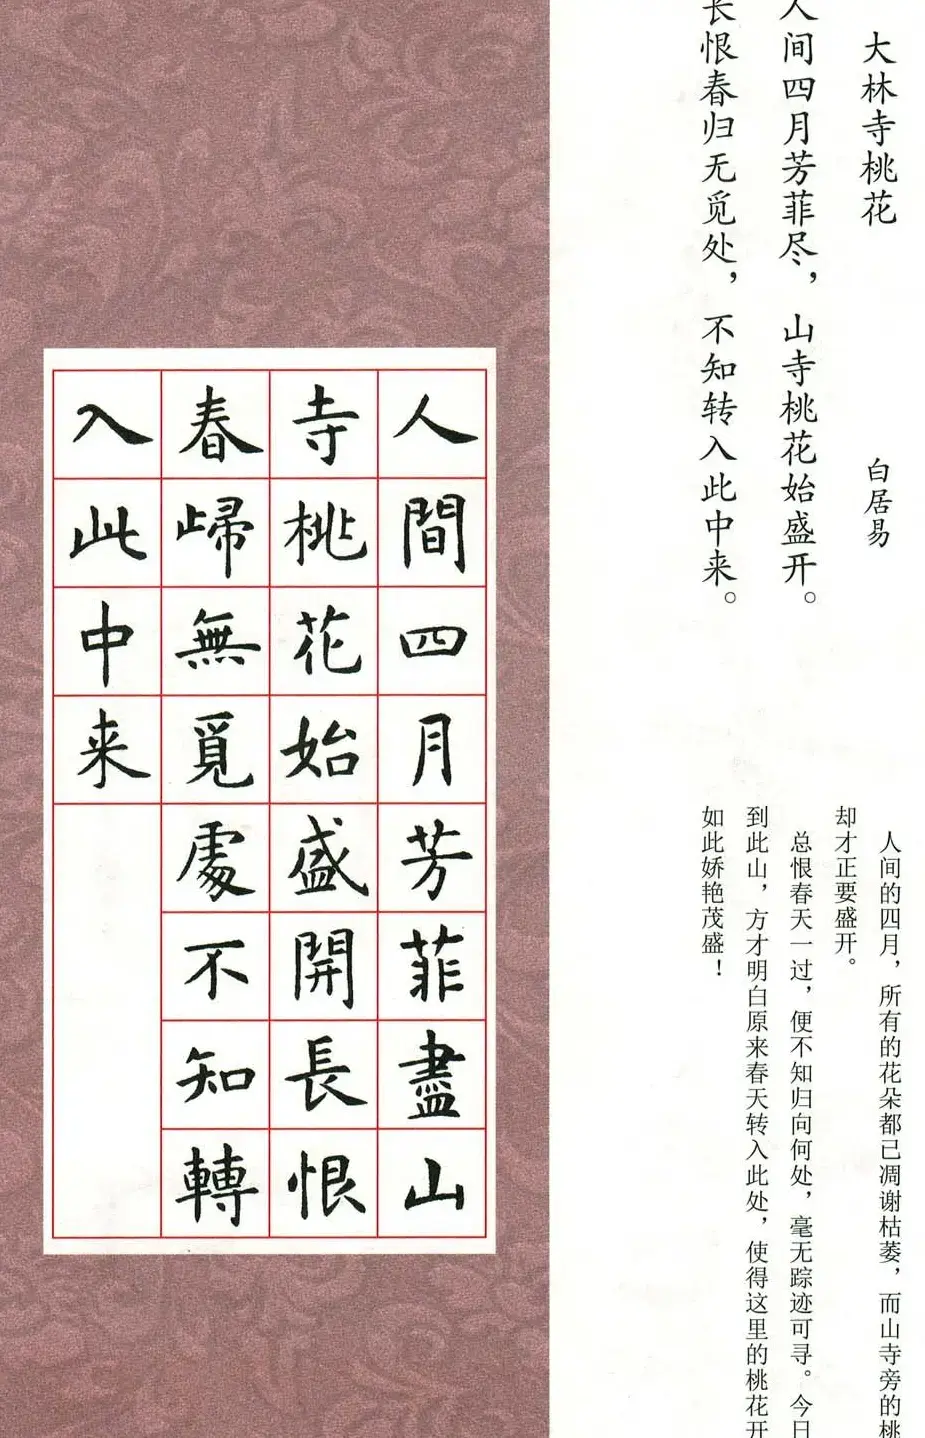 大林寺桃花
白居易
人间四月芳菲尽，山寺桃花始盛开。
长恨春归无觅处，不知转入此中来。
人间的四月，所有的花朵都已凋谢枯萎，而山寺旁的桃
却才正要盛开。
总恨春天一过，便不知归向何处，毫无踪迹可寻。今日
到此山，方才明白原来春天转入此处，使得这里的桃花开
如此娇艳茂盛！
人間四月芳菲盡山
寺桃花始盛開長恨
春歸無覓處不知轉
入此中来